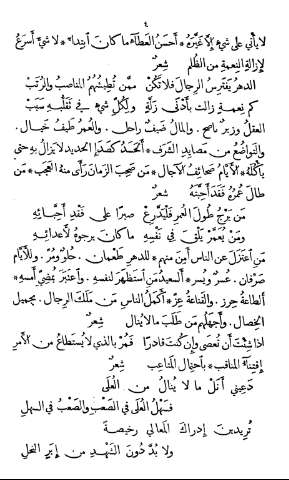 ٤
لا يأتي على شيء إلا غيره * أحسن العطاء ما كان ابتدأ * لا شيء أسرع
لإزالة النعمة من الظلم شعر
الدهر يفترس الرجال فلا تكن ممن تطيشهم المناصب والرتب
كم نعمة زالت بأدنى زلة ولكل شيء في تقلبه سبب
العقل وزير ناصح . والمال ضيف راحل . والعمر طيف خيال .
والتواضع من مصايد الشرف * الحسد كصدإ الحديد لا يزال به حتى
يأكله * الأيام صحائف الآجال * من صحب الزمان رأى منه العجب * من
طال عمره فقد أحبته شعر
من يرج طول العمر فليدرع صبرا على فقد أحبائه
ومن يعمر يلق في نفسه ما كان يرجوه لأعدائه
من اعتزل عن الناس أمن منهم * للدهر طعمان . حلو ومر . وللأيام
صرفان . عسر ويسر * السعيد من استظهر لنفسه . واعتبر بمضي أمسه *
الطاعة حرز . والقناعة عز * أكمل الناس من ملك الرجال . بجميل
الخصال . وأجهلهم من طلب ما لا ينال شعر
اذا شئت أن تعصى وإن كنت قادرا فمر بالذي لا يستطاع من الأمر
إقتناء المناقب * باحتمال المتاعب شعر
دعيني أنل ما لا ينال من العلى
فسهل العلى في الصعب والصعب في السهل
تريدين إدراك المعالي رخيصة
ولا بد دون الشهد من إبر النحل